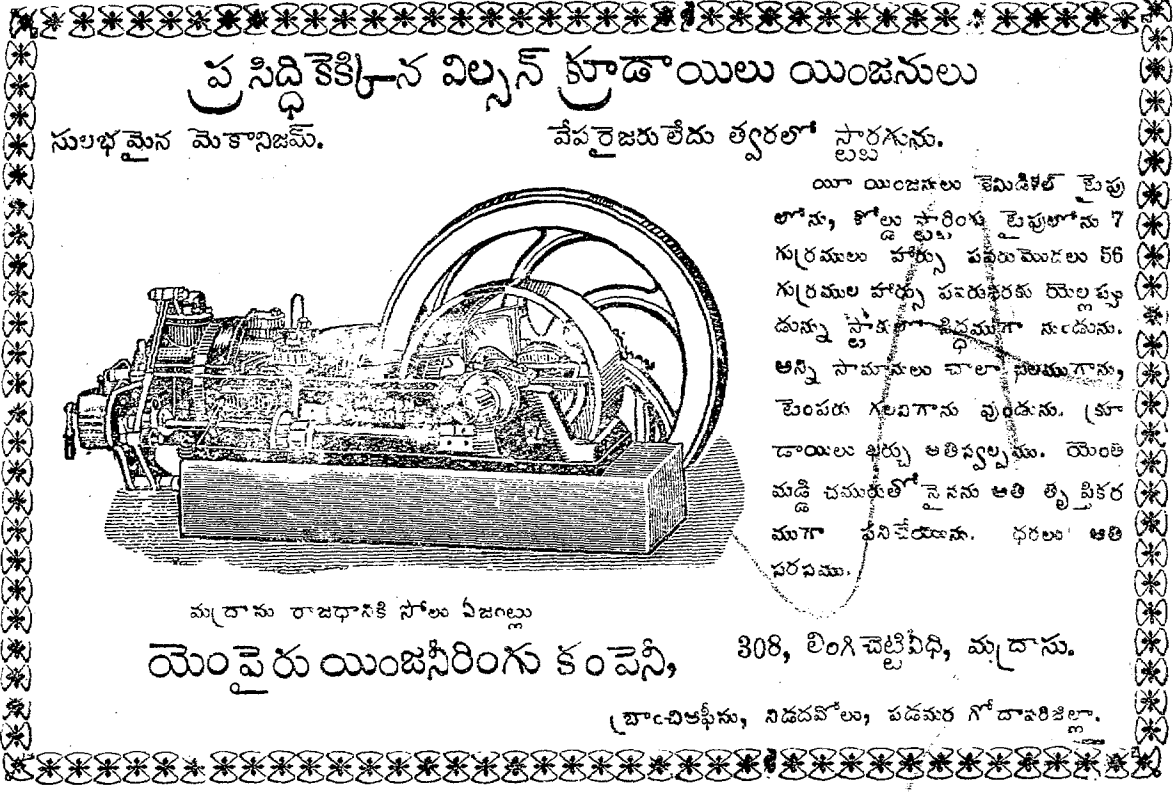 ప్రసిద్ధికెక్కిన విల్సన్ క్రూడాయిలు యింజనులు
సులభమైన మెకానిజమ్.
వేపరైజరులేదు త్వరలో స్టార్టగును.
యీ యింజనులు శెమిడీశల్ టైపు
లోను, కోల్డు స్టార్టింగు టైపులోను 7
గుర్రములు హార్సు పవరుమొదలు 56
గుర్రముల హార్సు పవరువరకు యెల్లప్పు
డున్ను స్టాకులో సిద్ధముగా నుండును.
అన్ని సామానులు చాలా బలముగాను,
టెంపరు గలవిగాను వుండును. క్రూ
డాయిలు ఖర్చు అతిస్వల్పము. యెంత
మడ్డి చమురుతో నైనను అతి తృప్తికర
ముగా పనిచేయును. ధరలు అతి
సరసము.
మద్రాసు రాజధానికి సోలు ఏజంట్లు
యెంపైరు యింజనీరింగు కంపెనీ,
308, లింగిచెట్టివీధి, మద్రాసు.
బ్రాంచిఆఫీసు, నిడదవోలు, పడమర గోదావరిజిల్లా.